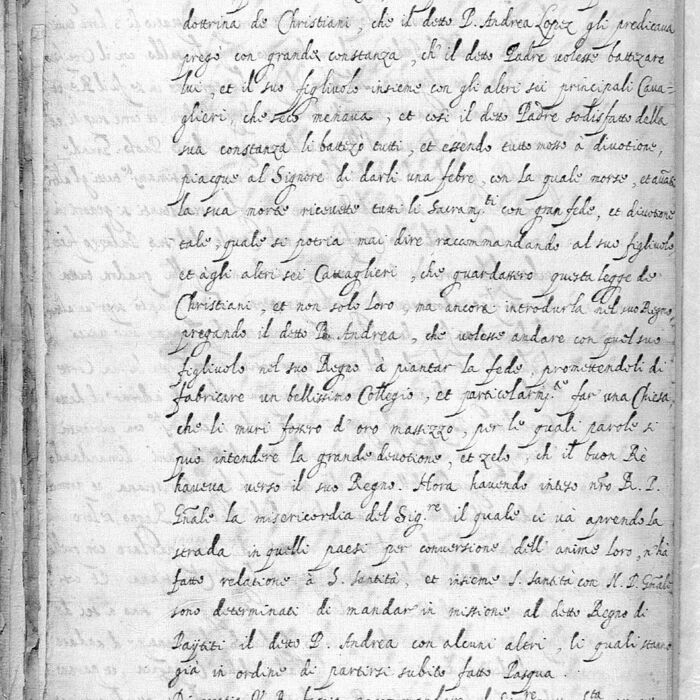 dottrina de Christiani, che il detto P. Andrea Lopez gli predicava
pregò con grande constanza, ch' il detto Padre volesse battizare
lui, et il suo figliuolo insieme con gli altri sei principali Cava=
glieri, che seco menava, et così il detto Padre sodisfatto della
sua constanza li battezo tutti, et essendo tutto mosso à divotione,
piacque al Signore di darli una febre, con la quale morse, et avanti
la sua morte ricevette tutti li Sacram.ti con gran fede, et divotione
tale, quale si potria mai dire raccommandando al suo figliuolo,
et àgli altri sei Cavaglieri, che guardassero questa legge de
Christiani, et non solo loro, ma ancora introdurla nel suo Regno,
pregando il detto P. Andrea, che volesse andare con quel suo
figliuolo nel suo Regno à piantar la fede, promettendoli di
fabricare un bellissimo Collegio, et particolarm.te far una Chiesa,
che li muri fossero d'oro massizzo, per le quali parole si
può intendere la grande devotione, et zelo, ch' il buon Rè
haveva verso il suo Regno. Hora havendo inteso nrõ R. P.
Gñale la misericordia del Sig.re il quale ci và aprendo la
strada in quelli paesi per conversione dell' anime loro, n'hà
fatte relatione à S. Santità, et insieme S. Santità con N. P. Gñale
sono determinati di mandar in missione al detto Regno di
Paytiti il detto P. Andrea con alcuni altri, li quali stanno
già in ordine di partirsi subito fatto Pasqua.